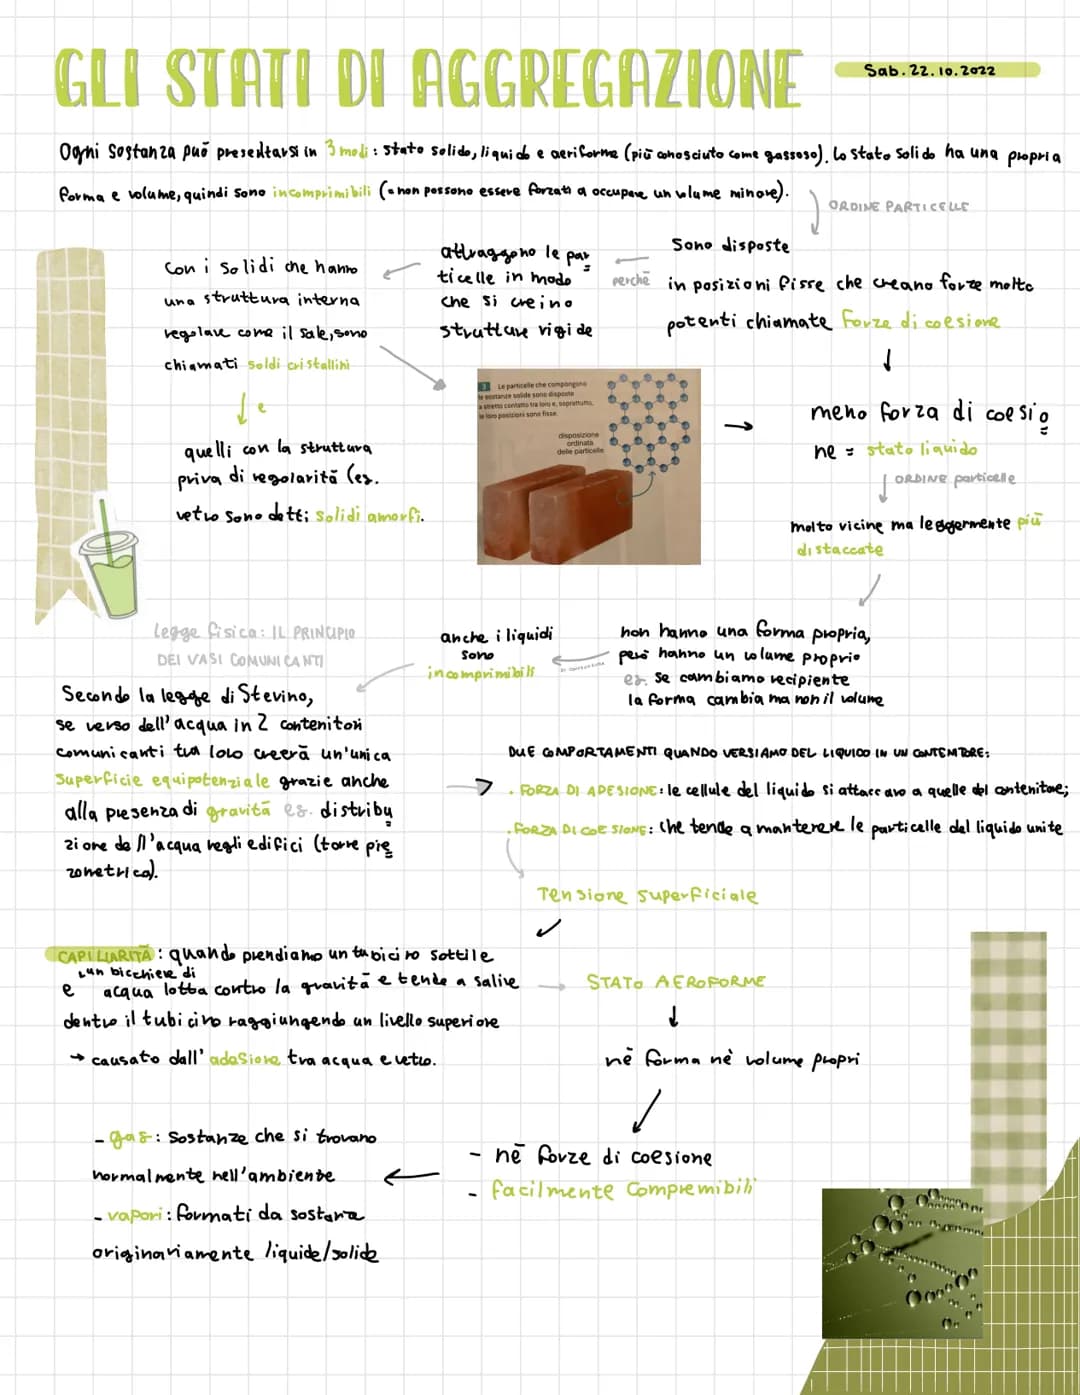 GLI STATI DI AGGREGAZIONE
Sab. 22.10.2022
Ogni Sostanza può presentarsi in 3 modi: stato solido, liquido e aeriforme (più conosciuto come gassoso). Lo stato solido ha una propria
forma e volume, quindi sono incomprimibili (= non possono essere forzati a occupare un volume minore).
ORDINE PARTICELLE
Sono disposte
in posizioni fisse che creano forze molto
potenti chiamate forze di coesione
perchè
attraggono le par
ticelle in modo
che si creino
strutture rigide
Con i solidi che hanno
una struttura interna
regolare come il sale, sono
chiamati soldi cristallini
e
quelli con la struttura
priva di regolarità (es.
vetro sono detti solidi amorfi.
3 Le particelle che compongono
le sostanze solide sono disposte
a stretto contatto tra loro e, soprattutto,
le loro posizioni sono fisse.
disposizione
ordinata
delle particelle
meno forza di coesio
ne = stato liquido
ORDINE particelle
molto vicine ma leggermente più
distaccate
non hanno una forma propria,
però hanno un volume proprio
es. se cambiamo recipiente
la forma cambia ma non il volume
anche i liquidi
sono
incomprimibili
legge fisica: IL PRINCIPIO
DEI VASI COMUNICANTI
Secondo la legge di Stevino,
se verso dell'acqua in 2 contenitori
comunicanti tra loro creerà un'unica
superficie equipotenziale grazie anche
alla presenza di gravità es. distribu
zione dell'acqua negli edifici (torre pie
zometrica).
DUE COMPORTAMENTI QUANDO VERSIAMO DEL LIQUIDO IN UN CONTENITORE:
. FORZA DI ADESIONE: le cellule del liquido si attaccano a quelle del contenitore;
. FORZA DI COESIONE: che tende a mantenere le particelle del liquido unite
Tensione superficiale
CAPILLARITÀ: quando prendiamo un tubicino sottile
un bicchiere di
e acqua lotta contro la gravità e tende a salire
dentro il tubicino raggiungendo un livello superiore
→ causato dall'adesione tra acqua e vetro.
STATO AEROFORME
nè forma nè volume propri
- nè forze di coesione
- facilmente compremibili
- gas: Sostanze che si trovano
normalmente nell'ambiente
- vapori: formati da sostanze
originariamente liquide/solide